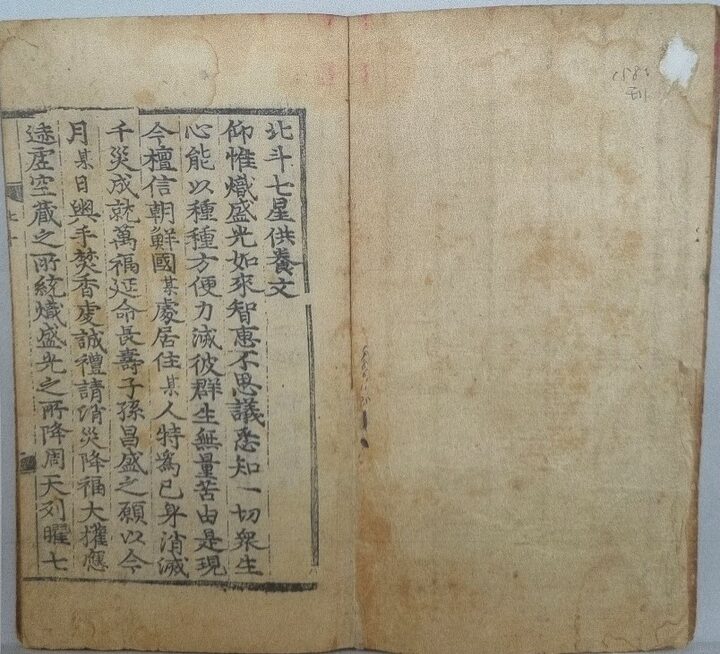 北斗七星供養文
仰惟熾盛光如來智惠不思議悉知一切衆生
心能以種種方便力滅彼群生無量苦由是現
今檀信朝鮮國某處居住某人特爲己身消滅
千災成就萬福延命長壽子孫昌盛之願以今
月某日手焚香虔誠禮請消災降福大權應
迹虛空藏之所統熾盛光之所降周天列曜七